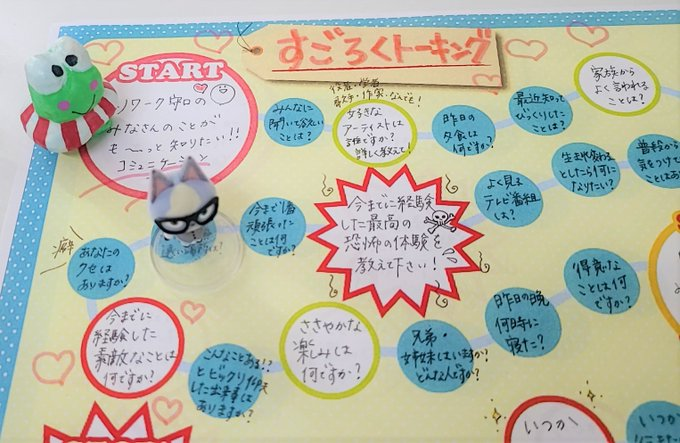 すごろくトーキング
START
ノワーク守口の
みなさんのことが
も〜っと知りたい!!
コミュニケーション
みんなに
聞いてみたい
ことは?
役者・学者
歌手・作家・なんでも!
好きな
アーティストは
誰ですか?
詳しく教えて!
昨日の
夕食は
何ですか?
最近知って
びっくりした
ことは?
家族から
よく言われる
ことは?
普段から
気をつけて
ことはあ
生まれ変わる
としたら何に
なりたい?
よく見る
テレビ番組
は?
今までに経験
した最高の
恐怖の体験を
教えて下さい!
今まで1番
頑張った
ことは何
ですか?
癖
あなたの
クセは
ありますか?
今までに
経験した
素敵なことは
何ですか?
こんなことある!?
とビックリ
した出来事は
ありますか?
ささやかな
楽しみは
何ですか?
兄弟・
姉妹はいますか?
どんな人ですか?
昨日の晩
何時に
寝た?
得意な
ことは何
ですか?
いつか
いつ